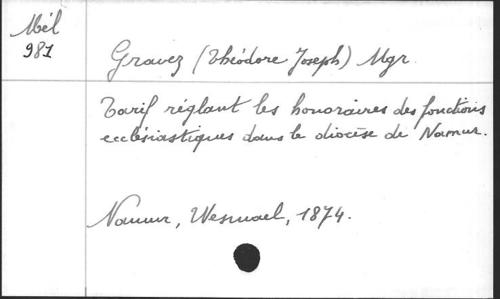 Mél
981
Gravez (Théodore Joseph) Mgr.
Tarif réglant les honoraires des fonctions
ecclésiastiques dans le diocèse de Namur.
Namur, Wesmael, 1874.